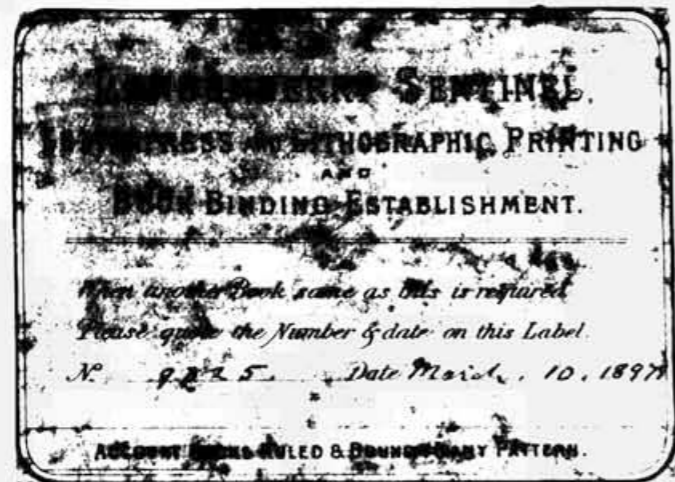 SENTINEL.
LETTERPRESS AND LITHOGRAPHIC PRINTING
AND
BOOK BINDING ESTABLISHMENT.
When another Book same as this is required
Please quote the Number & date on this Label.
No. Date March. 10. 1897
ACCOUNT BOOKS RULED & BOUND ANY PATTERN.